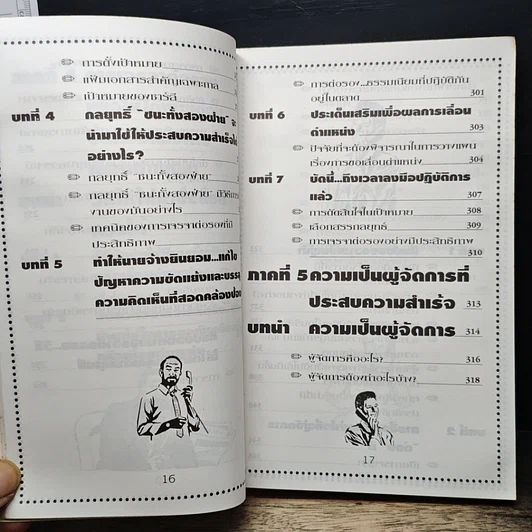 การตั้งเป้าหมาย
แฟ้มเอกสารสำคัญเฉพาะกาล
เป้าหมายของชาร์ลี
บทที่ 4 กลยุทธ์ "ชนะทั้งสองฝ่าย" จะ
นำมาใช้ให้ประสบความสำเร็จได้
อย่างไร?
กลยุทธ์ "ชนะทั้งสองฝ่าย"
กลยุทธ์ "ชนะทั้งสองฝ่าย" มีวิธีการ
งานของมันอย่างไร
เทคนิคของการเจรจาต่อรองที่มี
ประสิทธิภาพ
บทที่ 5 ทำให้นายจ้างยินยอม...แก้ไข
ปัญหาความขัดแย้งและบรรลุ
ความคิดเห็นที่สอดคล้องปอง
16
การต่อรอง...ธรรมเนียมที่ปฏิบัติกัน
อยู่ในตลาด 301
บทที่ 6 ประเด็นเสริมเพื่อผลการเลื่อน
ตำแหน่ง 303
ปัจจัยที่จะต้องพิจารณาในการวางแผน
เรื่องการขอเลื่อนตำแหน่ง 304
บทที่ 7 บัดนี้...ถึงเวลาลงมือปฏิบัติการ
แล้ว 307
การตัดสินใจในเป้าหมาย 308
เลือกสรรกลยุทธ์ 309
การเจรจาต่อรองอย่างมีประสิทธิภาพ
310
ภาคที่ 5 ความเป็นผู้จัดการที่
ประสบความสำเร็จ 313
บทนำ ความเป็นผู้จัดการ 314
ผู้จัดการคืออะไร? 316
ผู้จัดการต้องทำอะไรบ้าง? 318
17